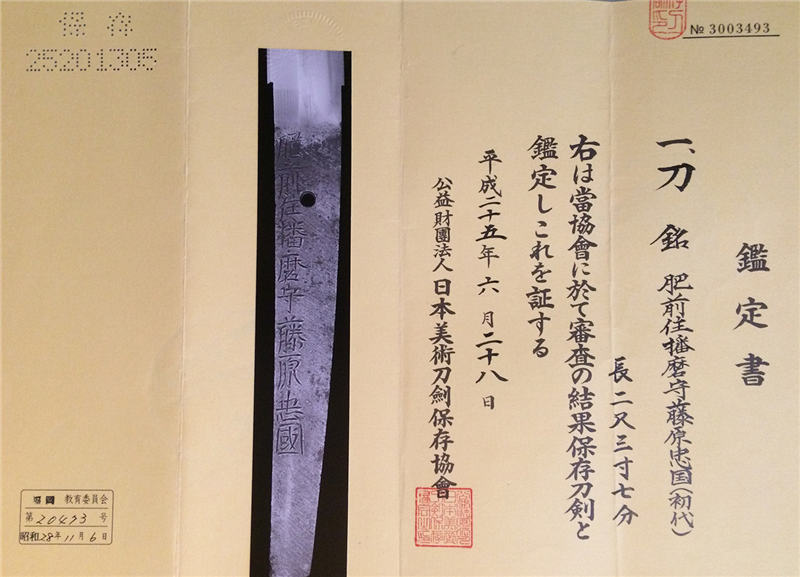 № 3003493
鑑定書
一、刀 銘 肥前住播磨守藤原忠国(初代)
長二尺三寸七分
右は當協會に於て審査の結果保存刀剣と
鑑定しこれを証する
平成二十五年六月二十八日
公益財團法人日本美術刀劍保存協會
肥前住播磨守藤原忠國
保存
25201305
教育委員会
第20473号
昭和28年11月6日